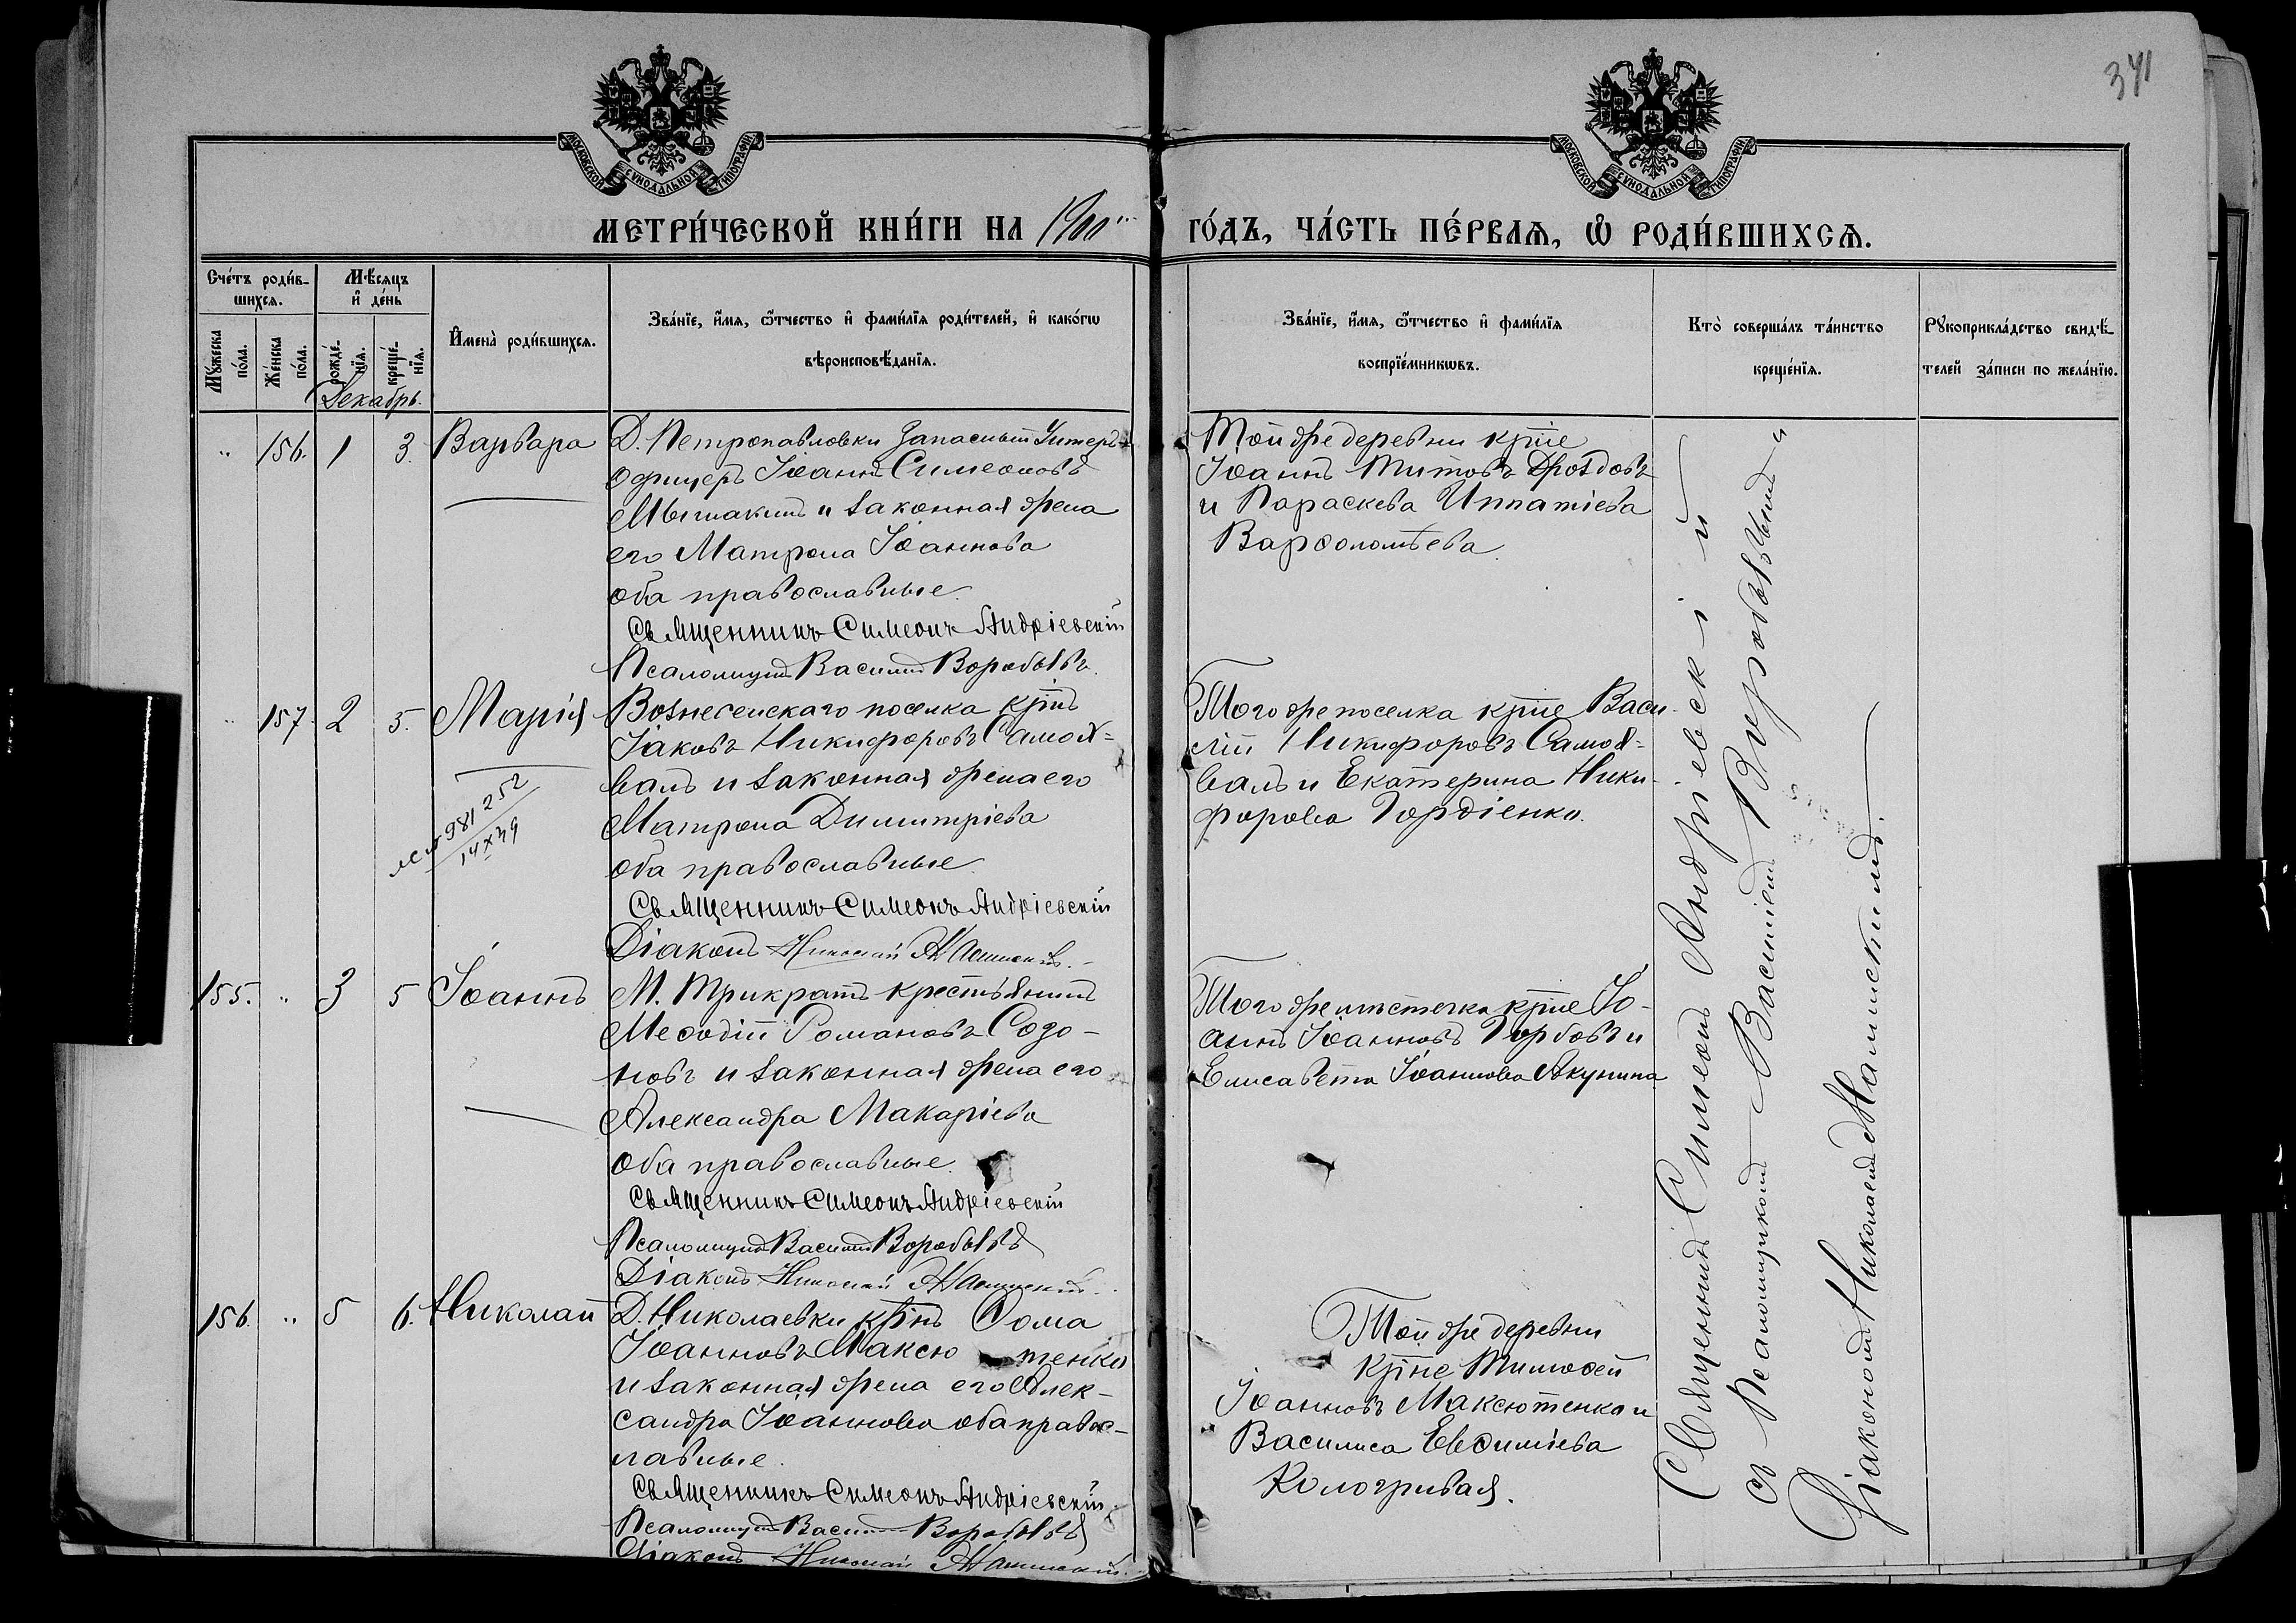 341
МОСКОВСКОЙ СѴНОДАЛЬНОЙ ТИПОГРАФІИ
МОСКОВСКОЙ СѴНОДАЛЬНОЙ ТИПОГРАФІИ
МЕТРИ́ЧЕСКОЙ КНИ́ГИ НА 1900
ГО́ДЪ, ЧА́СТЬ ПЕ́РВАѦ, Ѡ҆ РОДИ́ВШИХСѦ.
Сче́тъ роди́в-
шихсѧ.
Мꙋ́жеска
по́ла.
Же́нска
по́ла.
Мѣ́сѧцъ
и҆ де́нь
рожде́-
нїѧ.
креще́-
нїѧ.
Декабрь.
И҆мена̀ роди́вшихсѧ.
Зва́нїе, и҆́мѧ, ѻ҆́тчество и҆ фами́лїѧ роди́телей, и҆ како́гѡ
вѣроисповѣ́данїѧ.
Зва́нїе, и҆́мѧ, ѻ҆́тчество и҆ фами́лїѧ
воспрїе́мникѡвъ.
Кто̀ соверша́лъ та́инство
креще́нїѧ.
Рꙋкоприкла́дство свидѣ́-
телей за́писи по жела́нїю.
" 156. 1 3. Варвара
Д. Петропавловки Запасный Унтеръ-
офицеръ Іоаннъ Симеоновъ
и законная жена
его Матрона Іоаннова
оба православные.
Священникъ Симеонъ Андріевскій
Псаломщикъ Василій Воробьевъ.
Той же деревни кр-не
Іоаннъ Титовъ Дроздовъ
и Параскева Ипатіева
Варѳоломѣева.
" 157. 2 5. Марія
981252
14 X 39
Вознесенскаго поселка кр-нъ
Іаковъ Никифоровъ Самой-
валъ и законная жена его
Матрона Димитріева
оба православные.
Священникъ Симеонъ Андріевскій
Діаконъ Николай
Того же поселка кр-не Васи-
лій Никифоровъ Самой-
валъ и Екатерина Ники-
форова Гордіенко.
155. " 3 5 Іоаннъ
М. Трикратъ крестьянинъ
Меѳодій Романовъ Содо-
новъ и законная жена его
Александра Макаріева
оба православные.
Священникъ Симеонъ Андріевскій
Псаломщикъ Василій Воробьевъ
Діаконъ Николай
Того же мѣстечка кр-не Іо-
аннъ Іоанновъ Горбовъ и
Елисавета Іоаннова Якунина
156. " 5 6. Николай
Д. Николаевки кр-нъ Ѳома
Іоанновъ Максютенко
и законная жена его Алек-
сандра Іоаннова оба правос-
лавные.
Священникъ Симеонъ Андріевскій
Псаломщикъ Василій Воробьевъ
Діаконъ Николай
Той же деревни
кр-не Тимоѳей
Іоанновъ Максютенко и
Василиса Евѳиміева
Кологривая.
Священникъ Симеонъ Андріевскій
съ Псаломщикомъ Василіемъ Воробьевымъ и
Діакономъ Николаемъ